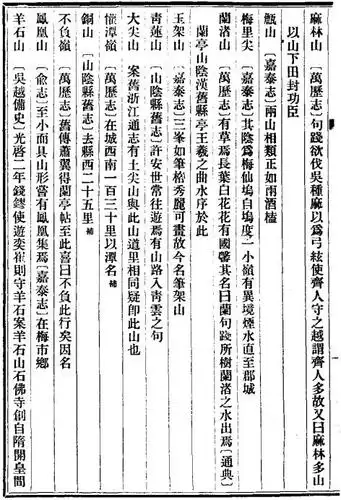 麻林山　〔萬歷志〕句踐欲伐吳種麻以爲弓絃使齊人守之越謂齊人多故又曰麻林多山
以山下田封功臣
甑山　〔嘉泰志〕兩山相類正如兩酒榼
梅里尖　〔嘉泰志〕其陰爲梅仙塢自塢度一小嶺有異境煙水直至郡城
蘭渚山　〔萬歷志〕有草焉長葉白花花有國馨其名曰蘭句踐所樹蘭渚之水出焉〔通典〕
蘭亭山陰漢舊縣亭王羲之曲水序於此
玉架山　〔嘉泰志〕三峯如筆格秀麗可畫故今名筆架山
青蓮山　〔山陰縣舊志〕許安世常往遊焉有山路入靑雲之句
大尖山　案舊浙江通志有土尖山與此山道里相同疑即此山也
懽潭嶺　〔萬歷志〕在城西南一百三十里以潭名補
銅山　〔山陰縣舊志〕去縣西二十五里補
不負嶺　〔萬歷志〕舊傳蕭翼得蘭亭帖至此喜曰不負此行矣因名
鳳凰山　〔兪志〕至小而具山形嘗有鳳凰集焉〔嘉泰志〕在梅市鄉
羊石山　〔吳越備史〕光啓二年錢鏐使遊奕崔則守羊石案羊石山石佛寺創自隋開皇間